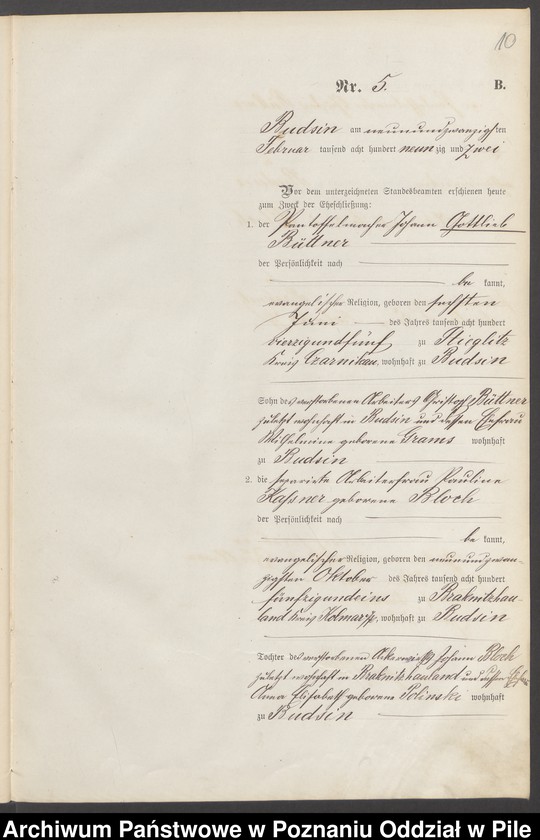 10
Nr. 5. B.
Budsin am neunundzwanzigsten
Februar tausend acht hundert neunzig und zwei
Vor dem unterzeichneten Standesbeamten erschienen heute
zum Zweck der Eheschließung:
1. der Pantoffelmacher Johann Gottlieb
Büttner
der Persönlichkeit nach
be kannt,
evangelischer Religion, geboren den sechsten
Juni des Jahres tausend acht hundert
vierzigundfünf zu Stieglitz
Kreis Czarnikau, wohnhaft zu Budsin
Sohn des verstorbenen Arbeiters Christoph Büttner
zuletzt wohnhaft in Budsin und dessen Ehefrau
Wilhelmine geborene Grams wohnhaft
zu Budsin
2. die separirte Arbeiterfrau Pauline
Kaßner geborene Bloch
der Persönlichkeit nach
be kannt,
evangelischer Religion, geboren den neunundzwan-
zigsten Oktober des Jahres tausend acht hundert
fünfzigundeins zu Braknitzhau-
land Kreis Kolmar i/P, wohnhaft zu Budsin
Tochter des verstorbenen Johann Bloch
zuletzt wohnhaft in Braknitzhauland und dessen Ehefrau
Anna Elisabeth geborene Polinski wohnhaft
zu Budsin
Archiwum Państwowe w Poznaniu Oddział w Pile